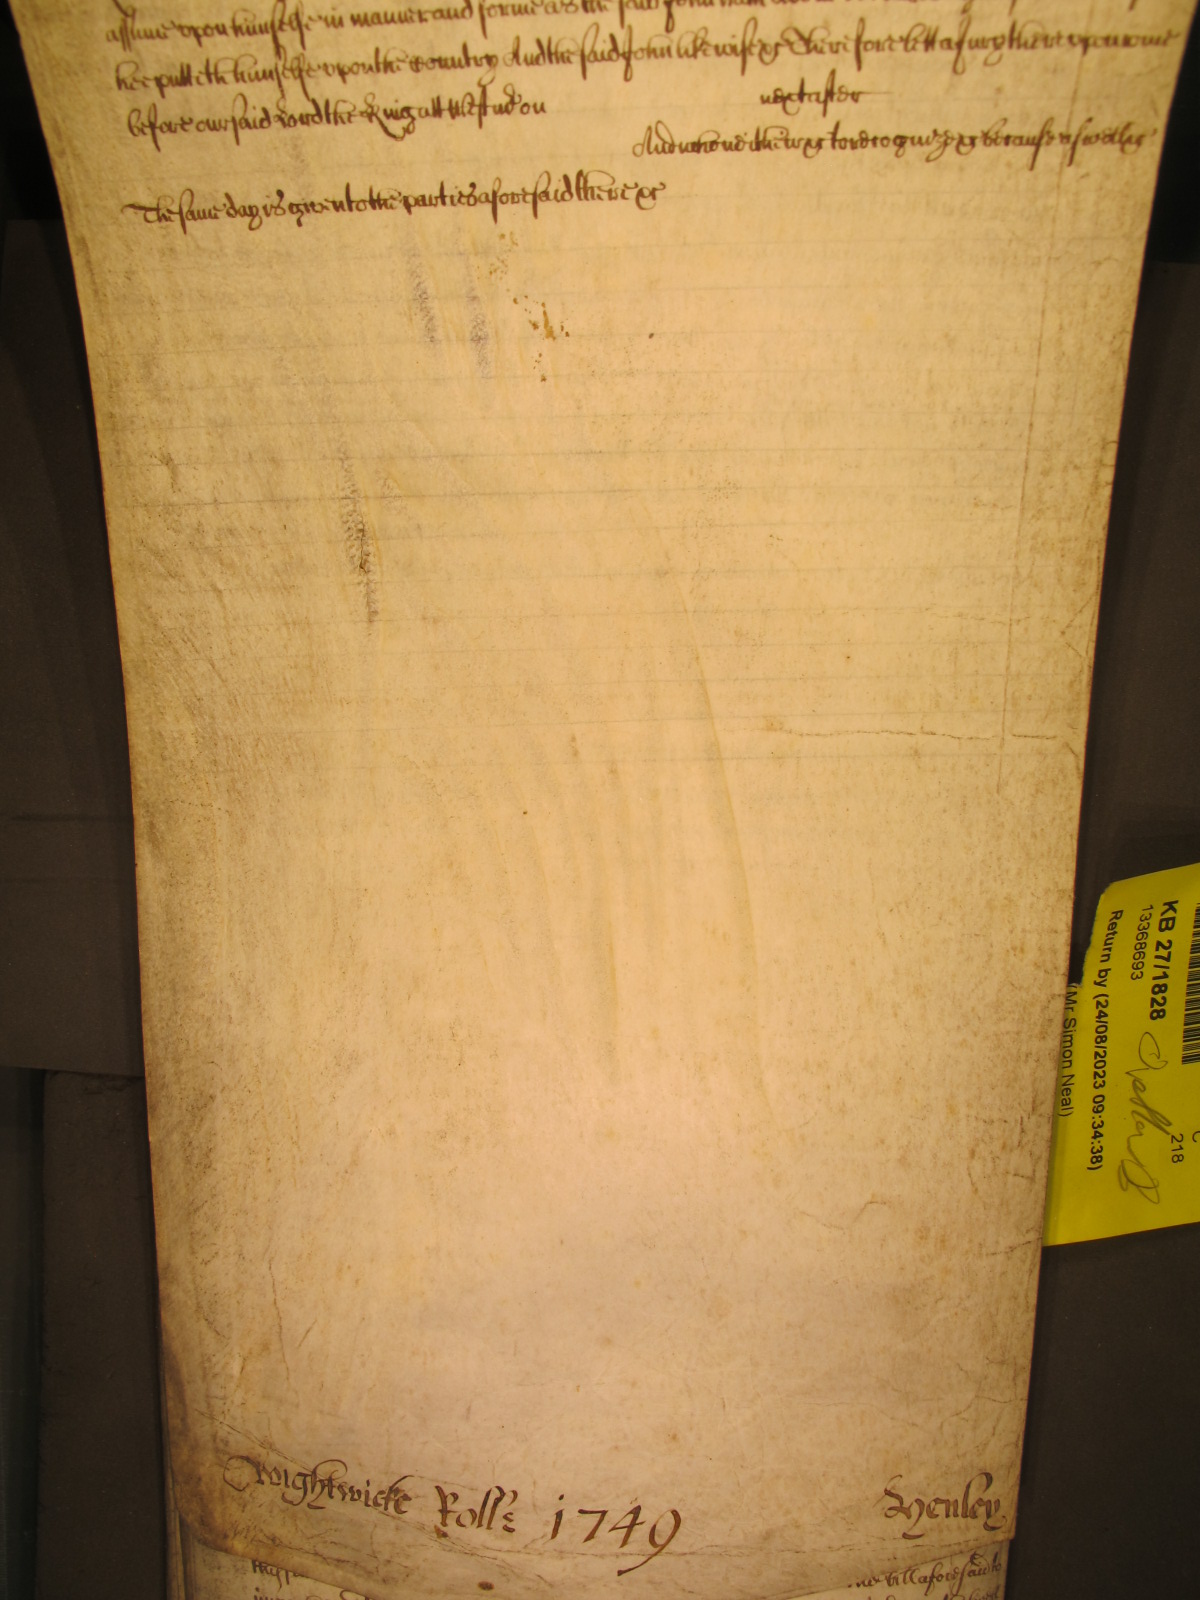 assume vpon himselfe in manner and forme as the said John hath
hee putteth himselfe vpon the Country And the said John likewise &c Therefore lett a Jury there vpon come
before our said Lord the King att Westmr on next after
And who neither &c to recognize &c because aswell &c
The same day is given to the parties aforesaid there &c
KB 27/1828
13368693
218
C
Return by (24/08/2023 09:34:38)
(Mr Simon Neal)
Wightwicke Rolls 1749 Henley
vill aforesaid